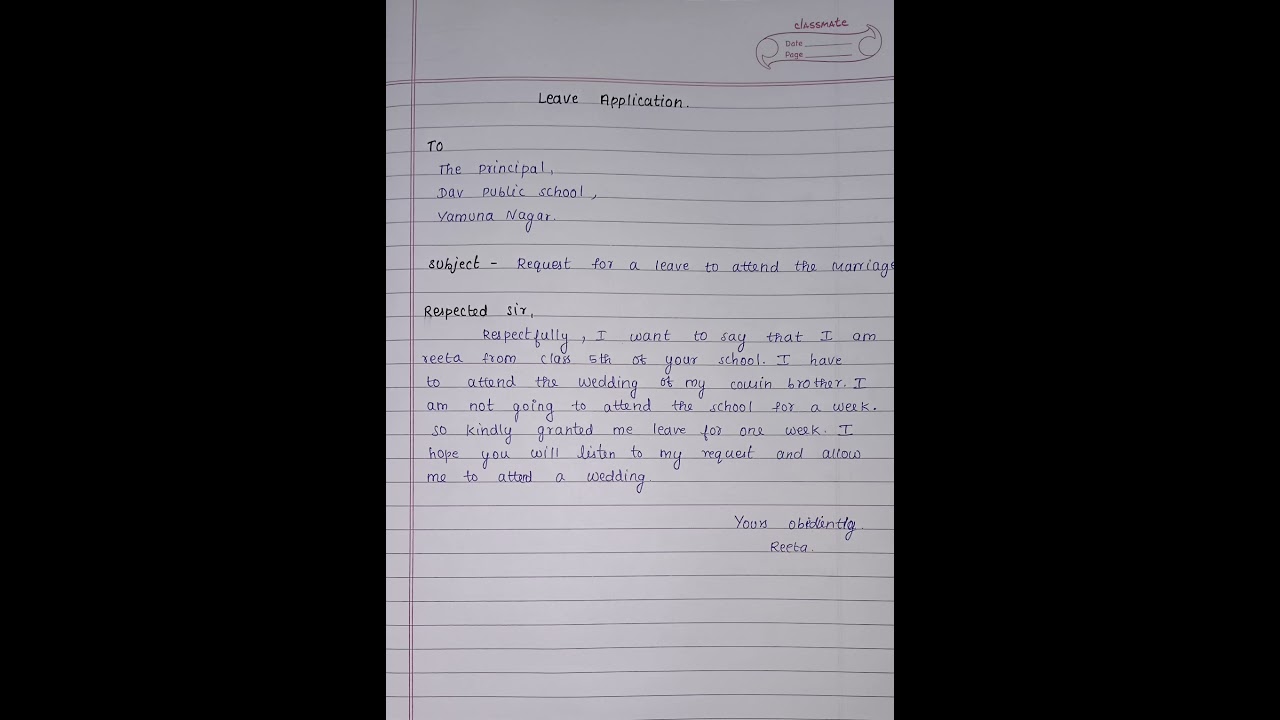 classmate
Date
Page
Leave Application.
To
The Principal,
Dav Public school,
Yamuna Nagar.
Subject - Request for a leave to attend the marriage
Respected Sir,
Respectfully, I want to say that I am
reeta from class 5th of your school. I have
to attend the wedding of my cousin brother. I
am not going to attend the school for a week.
so kindly granted me leave for one week. I
hope you will listen to my request and allow
me to attend a wedding.
Yours obidiently.
Reeta.